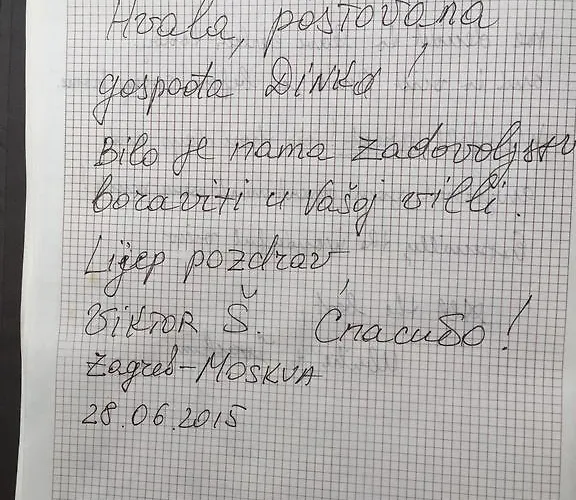 Hvala, poštovana
gospođa Dinka!
Bilo je nama zadovoljstvo
boraviti u Vašoj villi.
Lijep pozdrav,
Viktor Š. Спасибо!
Zagreb-MOSKVA
28.06.2015